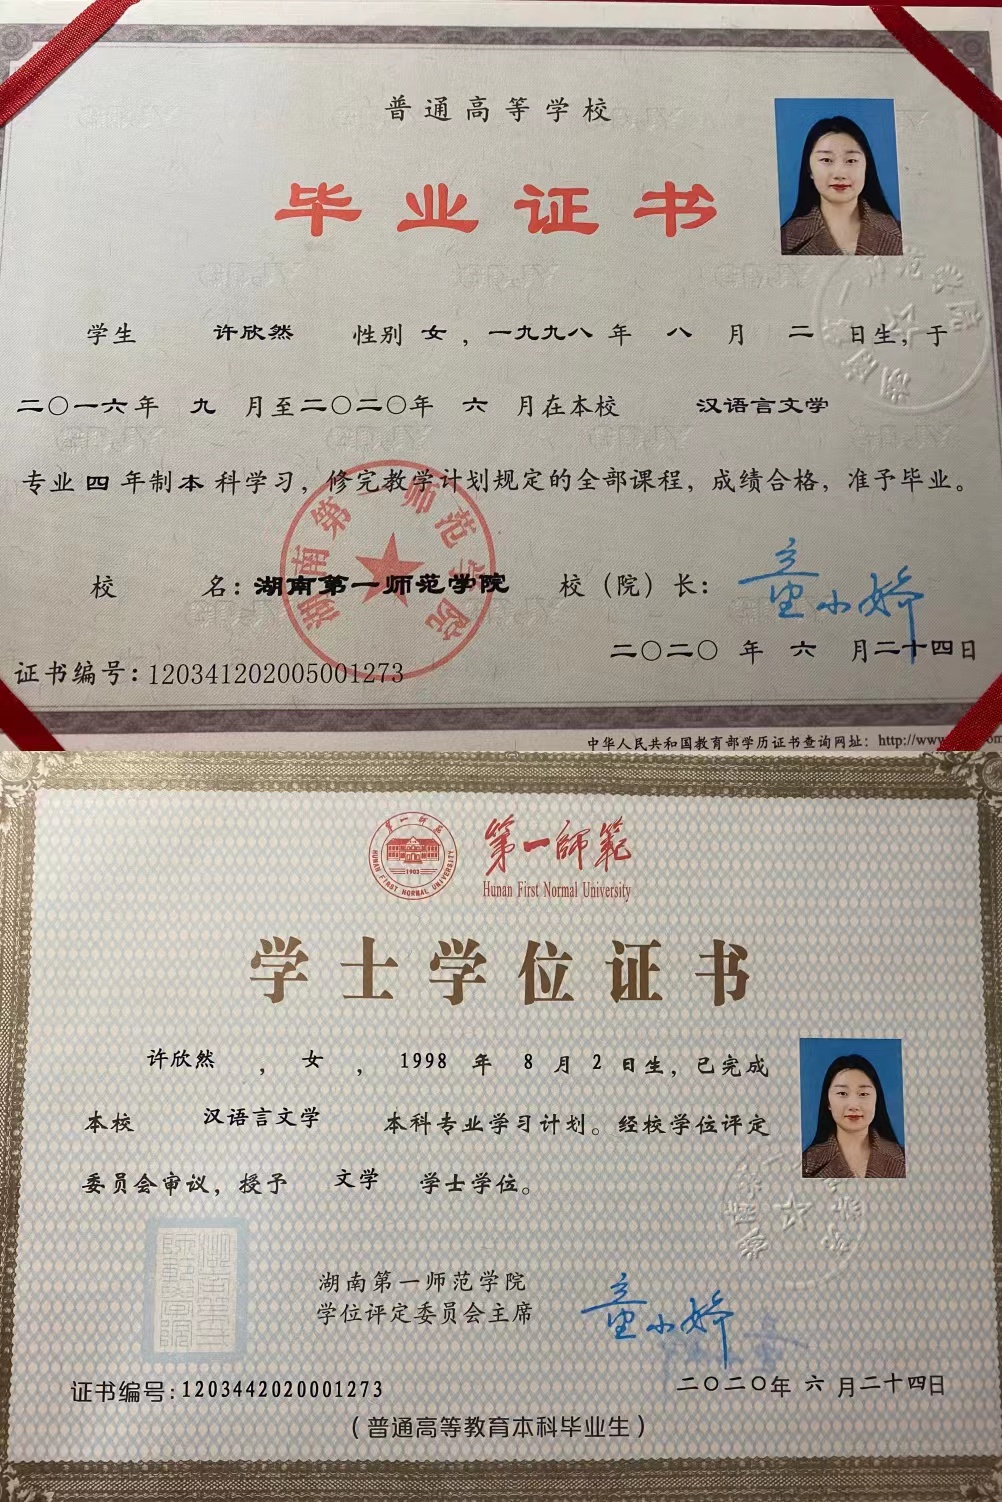 普通高等学校
毕业证书
学生 许欣然 性别 女，一九九八 年 八 月 二 日生，于
二〇一六年 九 月至二〇二〇年 六 月在本校 汉语言文学
专业 四 年制 本 科学习，修完教学计划规定的全部课程，成绩合格，准予毕业。
湖南第一师范学院
校 名：湖南第一师范学院 校（院）长：童小娇
二〇二〇 年 六 月二十四日
证书编号：120341202005001273
中华人民共和国教育部学历证书查询网址：http://www.
第一师范
HUNAN FIRST NORMAL UNIVERSITY
1903
第一師範
Hunan First Normal University
学士学位证书
许欣然 ，女，1998 年 8 月 2 日生，已完成
本校 汉语言文学 本科专业学习计划。经校学位评定
委员会审议，授予 文学 学士学位。
湖南第一师范学院
学位评定委员会主席 童小娇
证书编号：1203442020001273
二〇二〇年 六 月二十四日
（普通高等教育本科毕业生）